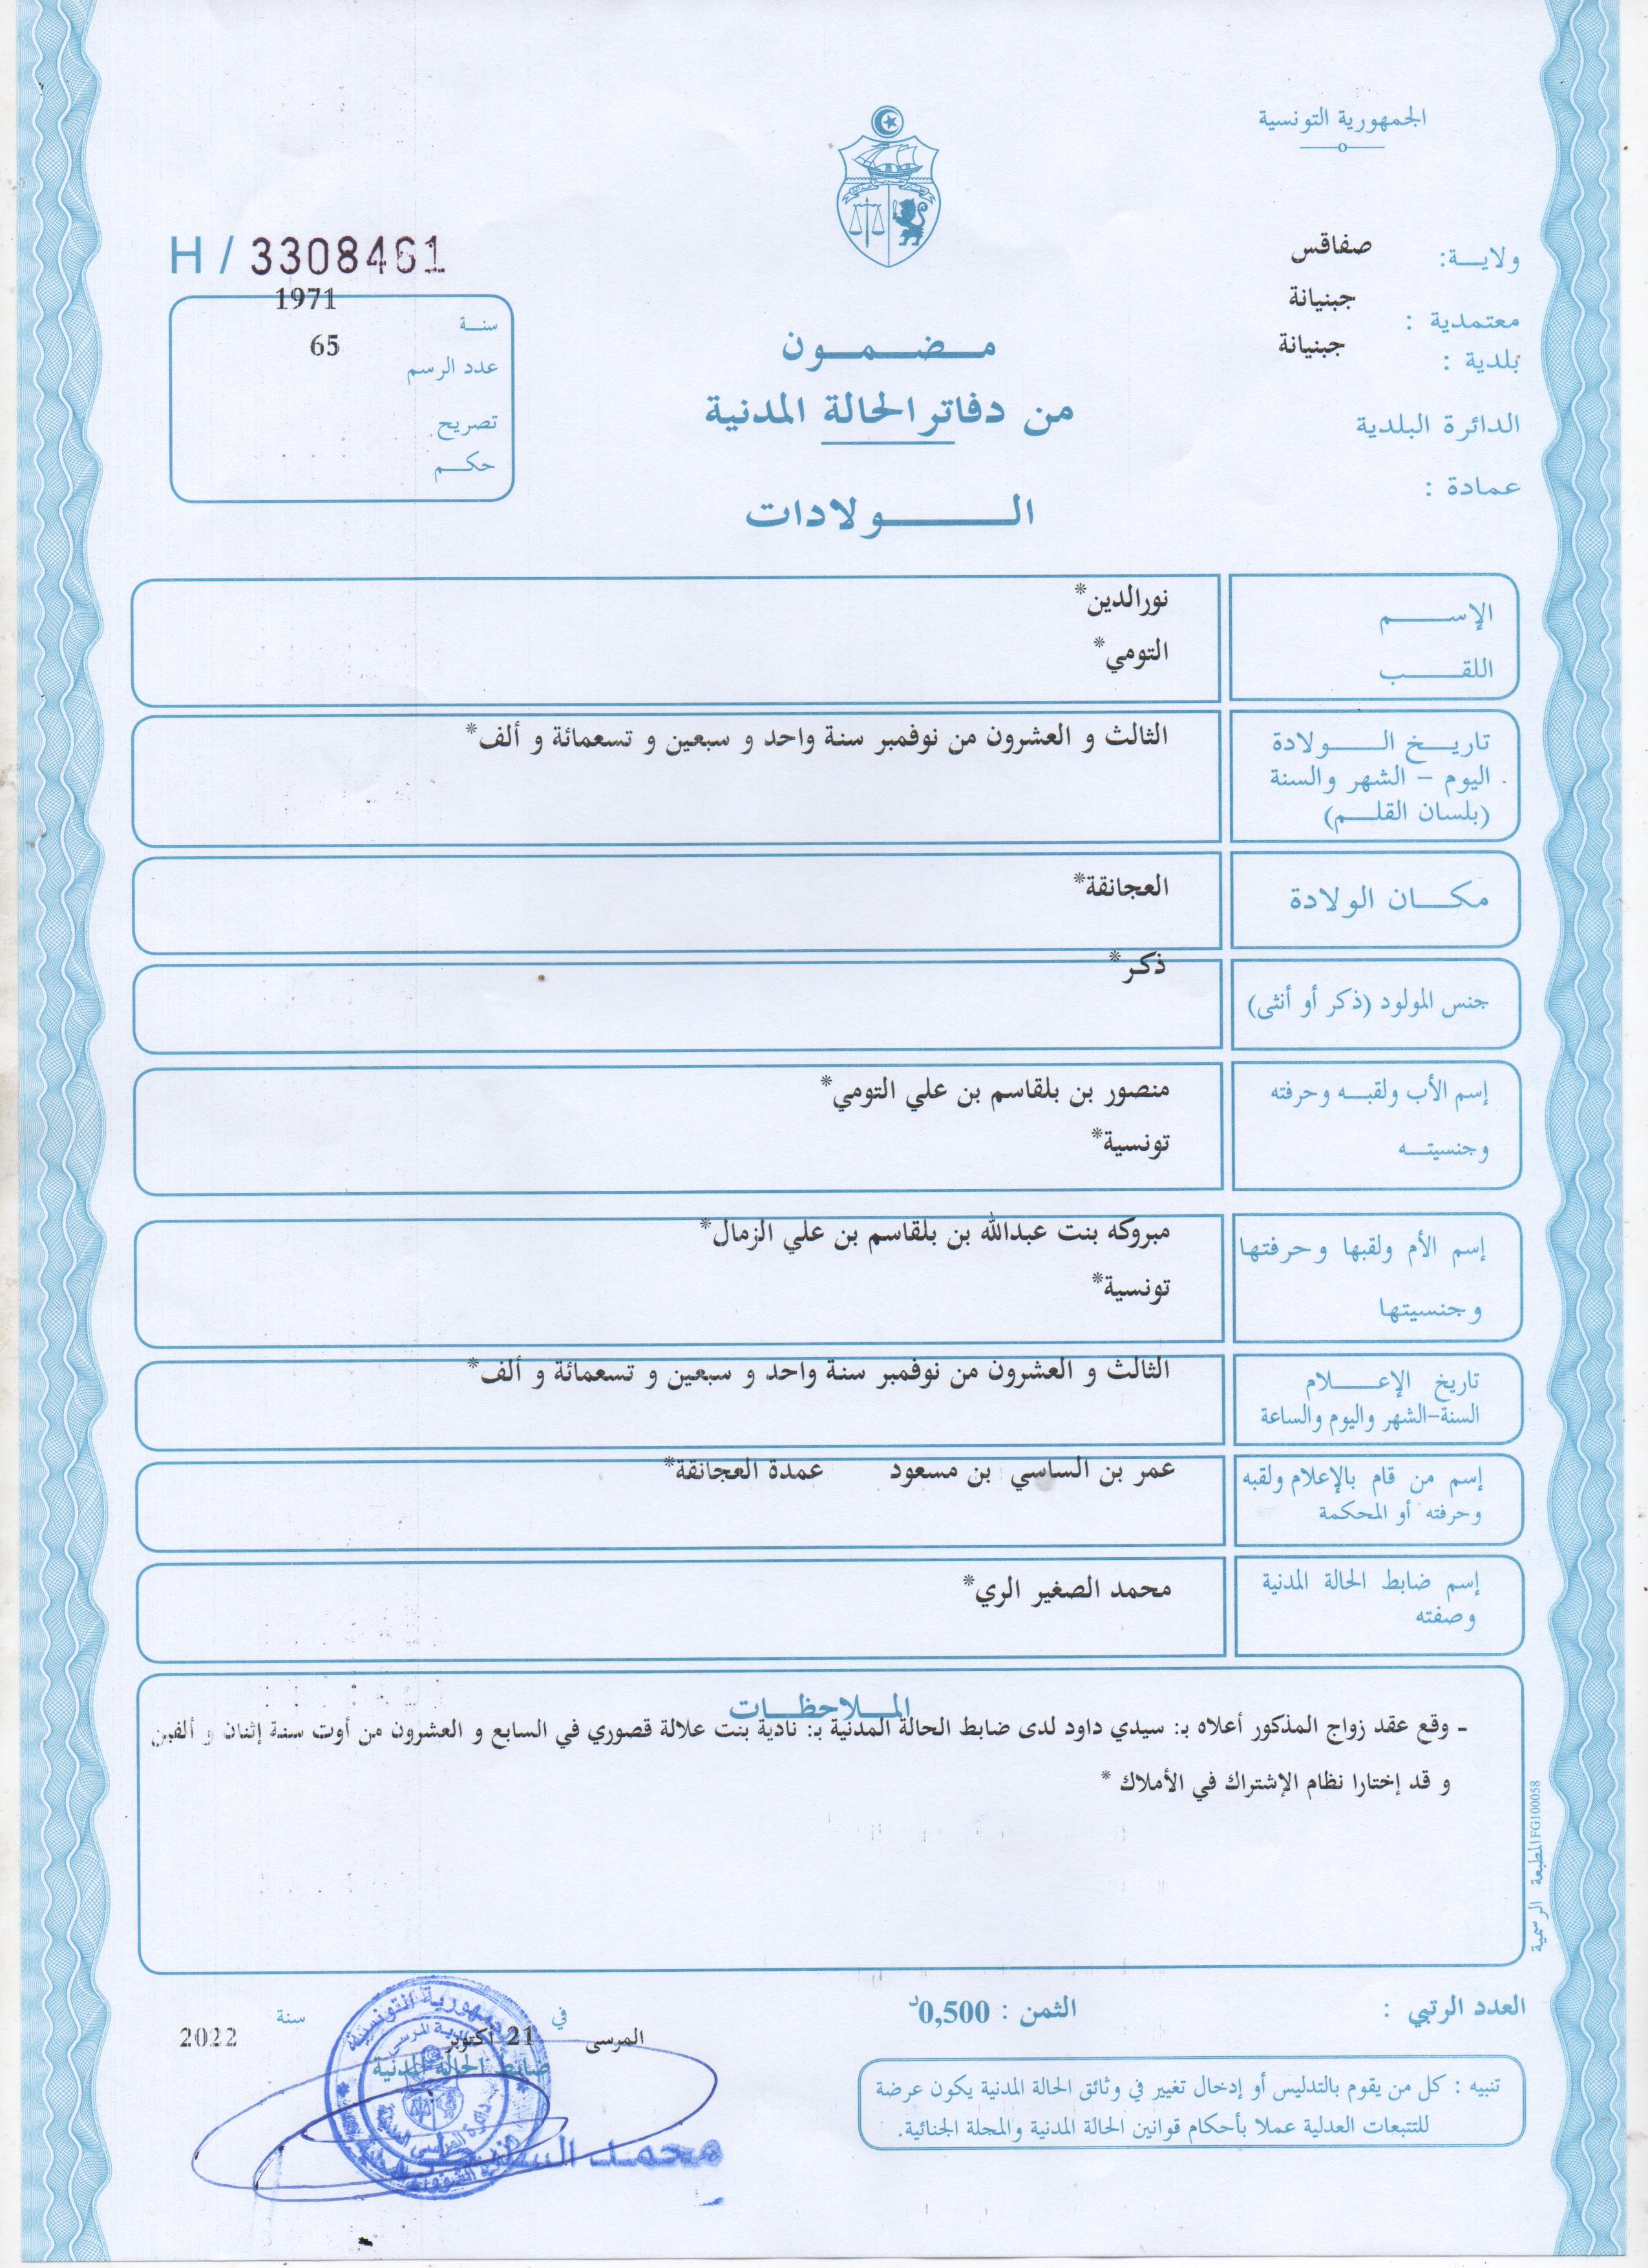 الجمهورية التونسية
ولاية: صفاقس
معتمدية : جبنيانة
بلدية : جبنيانة
الدائرة البلدية
عمادة :
H / 3308461
سنة 1971
عدد الرسم 65
تصريح
حكم
مضمون
من دفاتر الحالة المدنية
الولادات
الإسم نورالدين*
اللقب التومي*
تاريخ الولادة الثالث و العشرون من نوفمبر سنة واحد و سبعين و تسعمائة و ألف*
اليوم - الشهر والسنة
(بلسان القلم)
مكان الولادة العجانقة*
جنس المولود (ذكر أو أنثى) ذكر*
إسم الأب ولقبه وحرفته منصور بن بلقاسم بن علي التومي*
وجنسيته تونسية*
إسم الأم ولقبها وحرفتها مبروكه بنت عبدالله بن بلقاسم بن علي الزمال*
وجنسيتها تونسية*
تاريخ الإعلام الثالث و العشرون من نوفمبر سنة واحد و سبعين و تسعمائة و ألف*
السنة-الشهر واليوم والساعة
إسم من قام بالإعلام ولقبه عمر بن الساسي بن مسعود عمدة العجانقة*
وحرفته أو المحكمة
إسم ضابط الحالة المدنية محمد الصغير الري*
وصفته
الملاحظات
- وقع عقد زواج المذكور أعلاه بـ: سيدي داود لدى ضابط الحالة المدنية بـ: نادية بنت علالة قصوري في السابع و العشرون من أوت سنة إثنان و ألفين
و قد إختارا نظام الإشتراك في الأملاك *
المطبعة الرسمية IFG100058
العدد الرتبي :
الثمن : 0,500د
المرسى في 21 أكتوبر سنة 2022
ضابط الحالة المدنية
الجمهورية التونسية
محمد
تنبيه : كل من يقوم بالتدليس أو إدخال تغيير في وثائق الحالة المدنية يكون عرضة
للتتبعات العدلية عملا بأحكام قوانين الحالة المدنية والمجلة الجنائية.